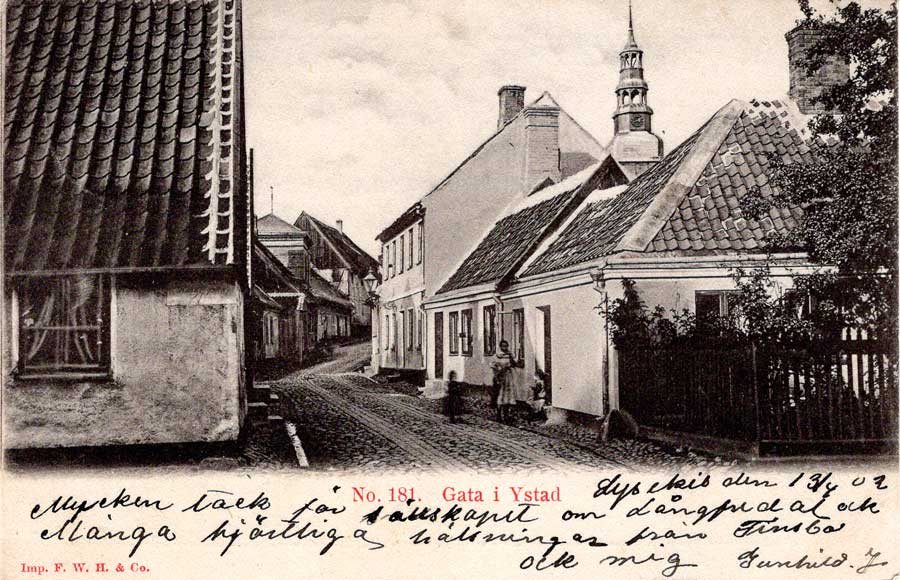 No. 181. Gata i Ystad
Lysekil den 13/4 02
Mycken tack för sällskapet om Långfredal ock
Många hjärtliga hälsningar från Finsbo
ock mig Gunhild. J.
Imp. F. W. H. & Co.